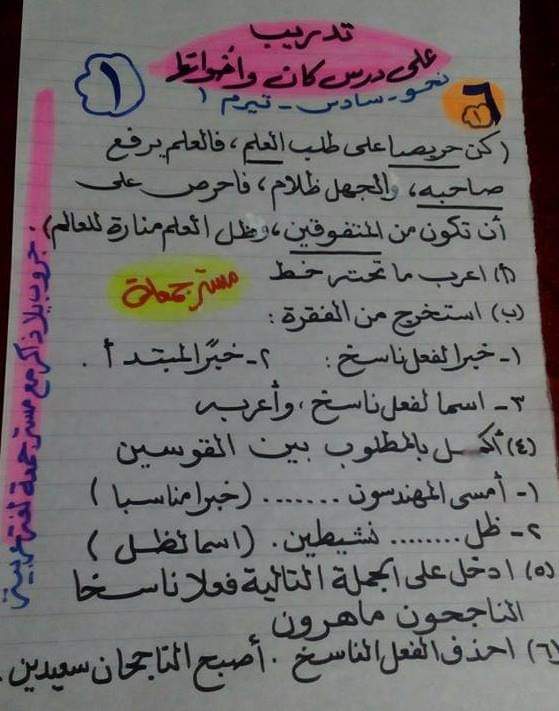 تدريب
على درس كان وأخواتها
نحو - سادس - تيرم ١
١
٦
١
(كن حريصا على طلب العلم، فالعلم يرفع
صاحبه، والجهل ظلام، فاحرص على
أن تكون من المتفوقين، وظل العلم منارة للعالم).
(أ) اعرب ما تحته خط
مستر جمعة
(ب) استخرج من الفقرة:
١- خبرا لفعل ناسخ: ٢- خبرًا لمبتدأ.
٣- اسما لفعل ناسخ، وأعربه
(٤) أكمل بالمطلوب بين القوسين
١- أمسى المهندسون ....... (خبرا مناسبا)
٢- ظل ........ نشيطين. (اسما لظل)
(٥) ادخل على الجملة التالية فعلا ناسخا
الناجحون ماهرون
(٦) احذف الفعل الناسخ. أصبح الناجحان سعيدين.
جروب يلا ذاكر مع مستر جمعة لغة عربية